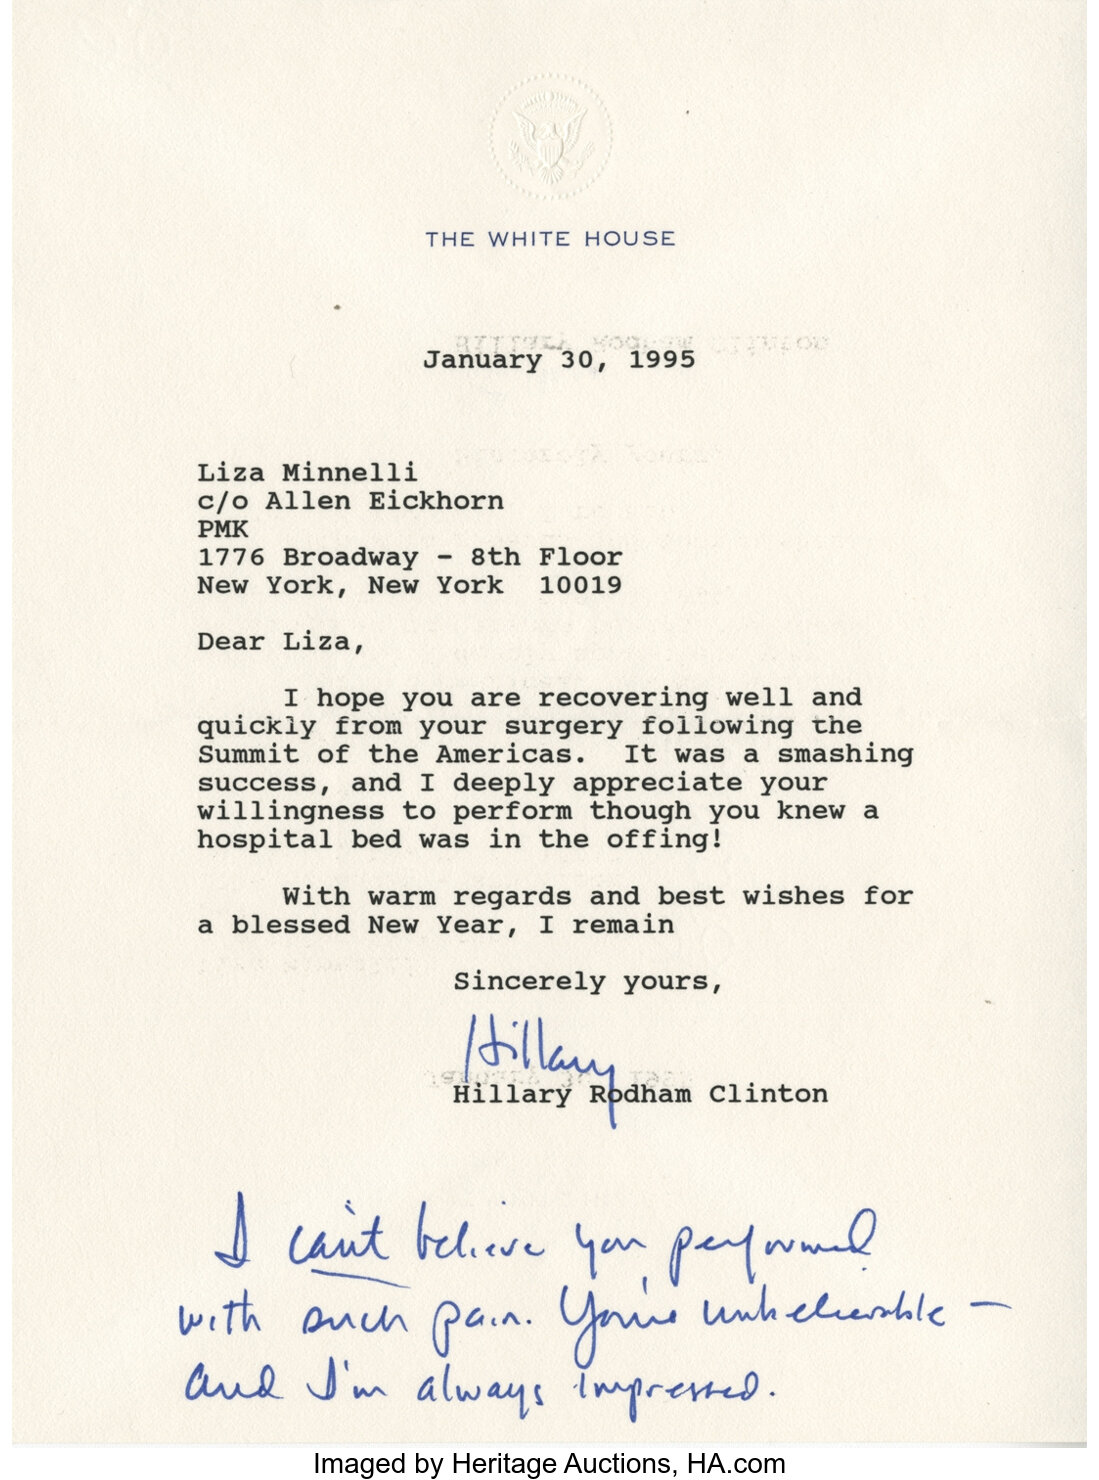 THE WHITE HOUSE
January 30, 1995
Liza Minnelli
c/o Allen Eickhorn
PMK
1776 Broadway - 8th Floor
New York, New York 10019
Dear Liza,
I hope you are recovering well and
quickly from your surgery following the
Summit of the Americas. It was a smashing
success, and I deeply appreciate your
willingness to perform though you knew a
hospital bed was in the offing!
With warm regards and best wishes for
a blessed New Year, I remain
Sincerely yours,
Hillary
Hillary Rodham Clinton
I can't believe you performed
with such pain. You're unbelievable —
and I'm always impressed.
Imaged by Heritage Auctions, HA.com